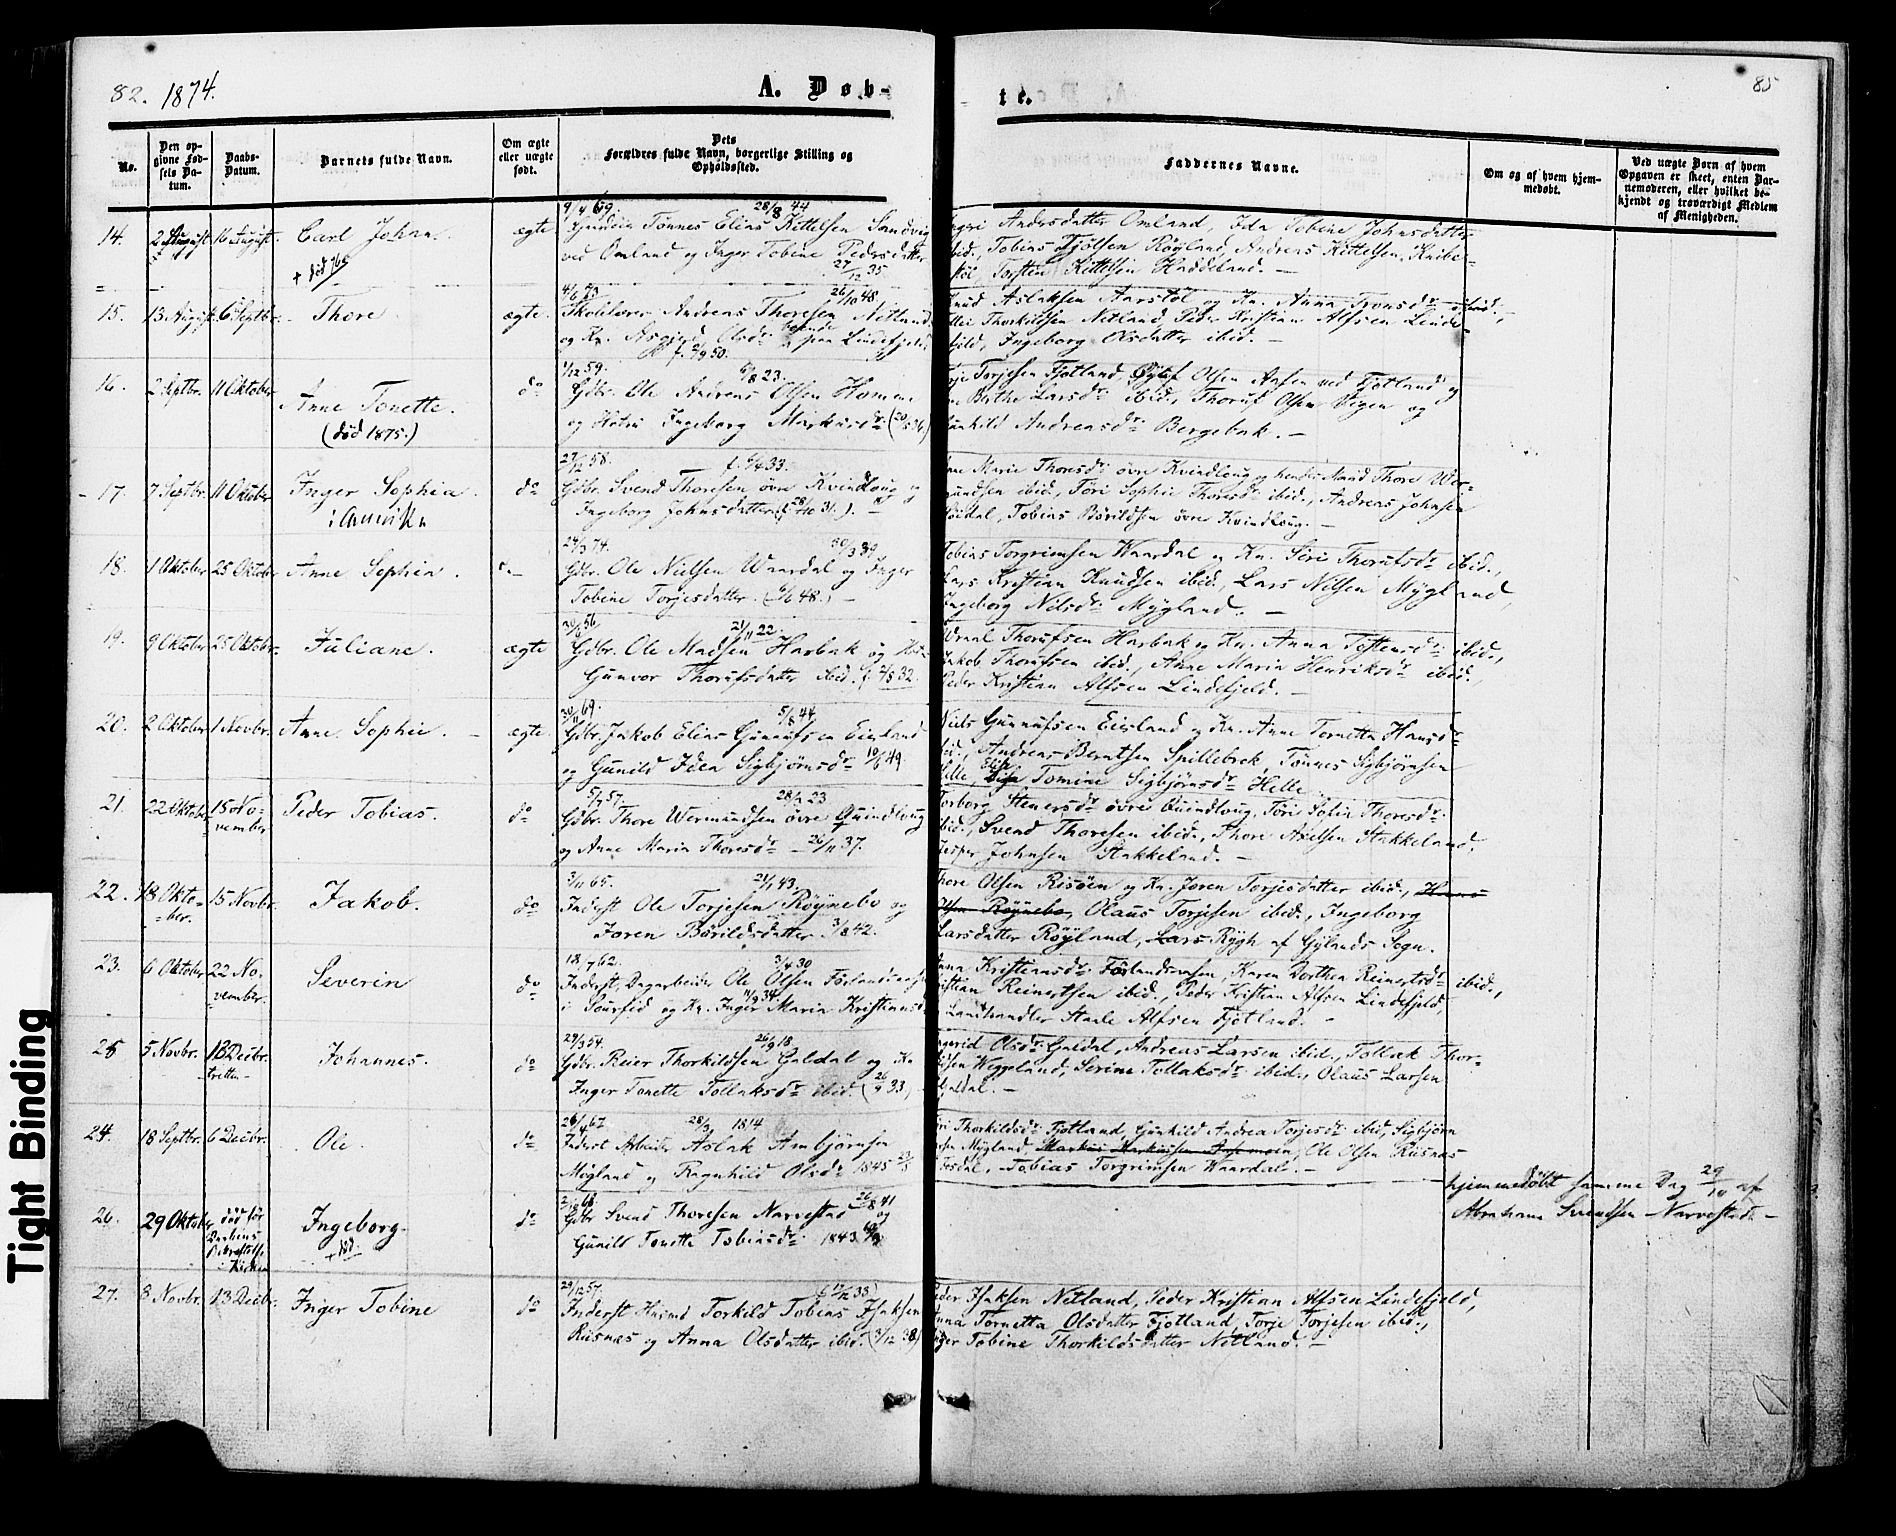 82. 1874.
A. Døb-
te.
85
No.
Den op-
givne Fød-
sels Da-
tum.
Daabs-
Datum.
Barnets fulde Navn.
Om ægte
eller uægte
født.
Dets
Forældres fulde Navn, borgerlige Stilling og
Opholdssted.
Faddernes Navne.
Om og af hvem hjem-
medøbt.
Ved uægte Børn af hvem
Opgaven er skeet, enten Bar-
nemoderen, eller hvilket be-
kjendt og troværdigt Medlem
af Menigheden.
14. 2 August 16 August Carl Johan. ægte
+ død
Tønnes Elias Kittelsen Sandvig
ved Omland og Inger Tobine Pedersdatter
27/12 35
Andersdatter Omland, Ida Tobine Johnsdatter
ibid., Tobias Fjølsen Røyland, Andreas Kittelsen Knibe-
Torsten Kittelsen Haddeland. —
15. 13 August 6 Septbr. Thore ægte.
26/10 48.
Skolelærer Andreas Thoresen Netland
og Kn. Asgjerd Olsdr. boende paa Lindefjeld
Aslaksen Aarstøl og Kn. Anna Tronsdr. ibid.,
Thorkildsen Netland, Peder Kristian Alfsen Linde-
fjeld, Ingeborg Olsdatter ibid. —
16. 2 Septbr. 11 Oktober Anne Tonette. do
(død 1875.)
1/12 59. 6/8 23.
Gdbr. Ole Andreas Olsen Homme
og Hstru Ingeborg Markusdr.
Torjesen Fjotland, Olsen Aasen ved Fjotland og
Berthe Larsdr. ibid., Thoruf Olsen Vegen og
Gunhild Andreasdr. Bergebak. —
17. 7 Septbr. 11 Oktober Inger Sophia. do
i Amerika
27/12 58. 33.
Gdbr. Svend Thoresen øvre Kvindloug og
Ingeborg Johnsdatter
Marie Thoresdr. øvre Kvindloug og hendes Mand Thore Wer-
mundsen ibid., Tøri Sophie Thoresdr. ibid., Andreas Johnsen
Tobias Børildsen øvre Kvindloug. —
18. 1 Oktober 25 Oktober Anne Sophia.
24/3 74. 30/3 39.
Gdbr. Ole Nielsen Waardal og Inger
Tobine Torjesdatter.
Tobias Torgrimsen Waardal og Kn. Siri Thorufsdr. ibid.,
Lars Kristian Knudsen ibid., Lars Nilsen Mygland,
Ingeborg Nilsdr. Mygland. —
19. 9 Oktober 25 Oktober Juliane. ægte
30/6 56. 21/11 22.
Gdbr. Ole Madsen Harbak og
Gunvor Thorufsdatter ibid.
Thorufsen Harbak og Kn. Anna Tostensdr. ibid.,
Jakob Thorufsen ibid., Anne Maria Henriksdr. ibid.,
Peder Kristian Alfsen Lindefjeld. —
20. 2 Oktober 1 Novbr. Anne Sophie. ægte.
30/11 69. 5/8 44
Gdbr. Jakob Elias Gunufsen Eiesland
og Gunild Idea Sigbjørnsdr. 10/6 49.
Niels Gunnufsen Eiesland og Kn. Anne Tornetta Hansdr.
ibid., Andreas Berntsen Spillebrok, Tønnes Sigbjørnsen
Helle, Elise Tomine Sigbjørnsdr. Helle
21. 22 Oktober 15 No-
vember Peder Tobias. do
5/7 57. 28/2 23
Gdbr. Thore Wermundsen øvre Quindloug
og Anne Maria Thoresdr. — 26/11 37.
Torborg Stenersdr. øvre Quindloug, Tøri Sofia Thoresdr.
ibid., Svend Thoresen ibid., Thore Axelsen Stakkeland.
Jesper Johnsen Stakkeland. —
22. 18 Okto-
ber. 15 Novbr. Jakob. do
3/11 65. 21/1 43.
Inderst Ole Torjesen Røynebo og
Joren Børildsdatter 3/8 42.
Thore Olsen Risøen og Kn. Joren Torjesdatter ibid., Hans
Olsen Røynebo, Olaus Torjesen ibid., Ingeborg
Larsdatter Røyland, Lars Rygh af Gylands Sogn.
23. 6 Oktober 22 No-
vember. Severin do
18/7 62. 3/4 30
Inderst, Dagarbeider Ole Olsen Førlandsaasen
i Sourfid og Kn. Inger Maria Kristiansdr.
11/9 34.
Anna Kristiansdr. Førlandsaasen, Karen Dorthea Reinertsdr. ibid.,
Kristian Reinertsen ibid., Peder Kristian Alfsen Lindefjeld,
Landhandler Staale Alfsen Fjotland. —
25 5 Novbr. 13 Decbr.
tretten Johannes. do
29/3 54. 26/9 18
Gdbr. Reier Thorkildsen Galdal og Kn
Inger Tonette Tollaksdr. ibid. (26/9 33)
Ingerid Olsdr. Galdal, Andreas Larsen ibid., Tollak Thor-
kildsen Weggeland, Serine Tollaksdr. ibid., Olaus Larsen
Galdal. —
24. 18 Septbr. 6 Decbr. Ole. do
26/4 67. 28/3 1814
Inderst Arbeider Aslak Ambjørnsen
Mygland og Ragnhild Olsdr. 1845
Thorkildsdr. Fjotland, Gunhild Andrea Torjesdr. ibid., Sigbjørn
Mygland, Markus Markussen Aasemoen, Ole Olsen Rusnes
Tobias Torgrimsen Waardal. —
26. 29 Oktober død før
Daabens
Bekræftelse
i Kirken Ingeborg. do
+ død.
26/8 41
Gdbr Svend Thoresen Narvestad og
Gunild Tonette Tobiasdr. 1843
hjemmedøbt samme Dag 29/10 af
Abraham Svendsen Narvestad. —
27. 8 Novbr. 13 Decbr. Inger Tobine do
29/12 57. 33)
Inderst Husmd Torkild Tobias Isaksen
Rusnæs og Anna Olsdatter ibid. (3/12 38)
Peder Isaksen Netland, Peder Kristian Alfsen Lindefjeld,
Anna Tornetta Olsdatter Fjotland, Torje Torjesen ibid.,
Inger Tobine Thorkildsdatter Netland. —
Tight Binding